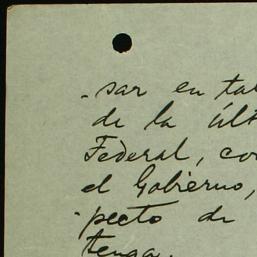 -sar en tal
de la últ
Federal, co
el Gobierno,
-pecto de
tenga.